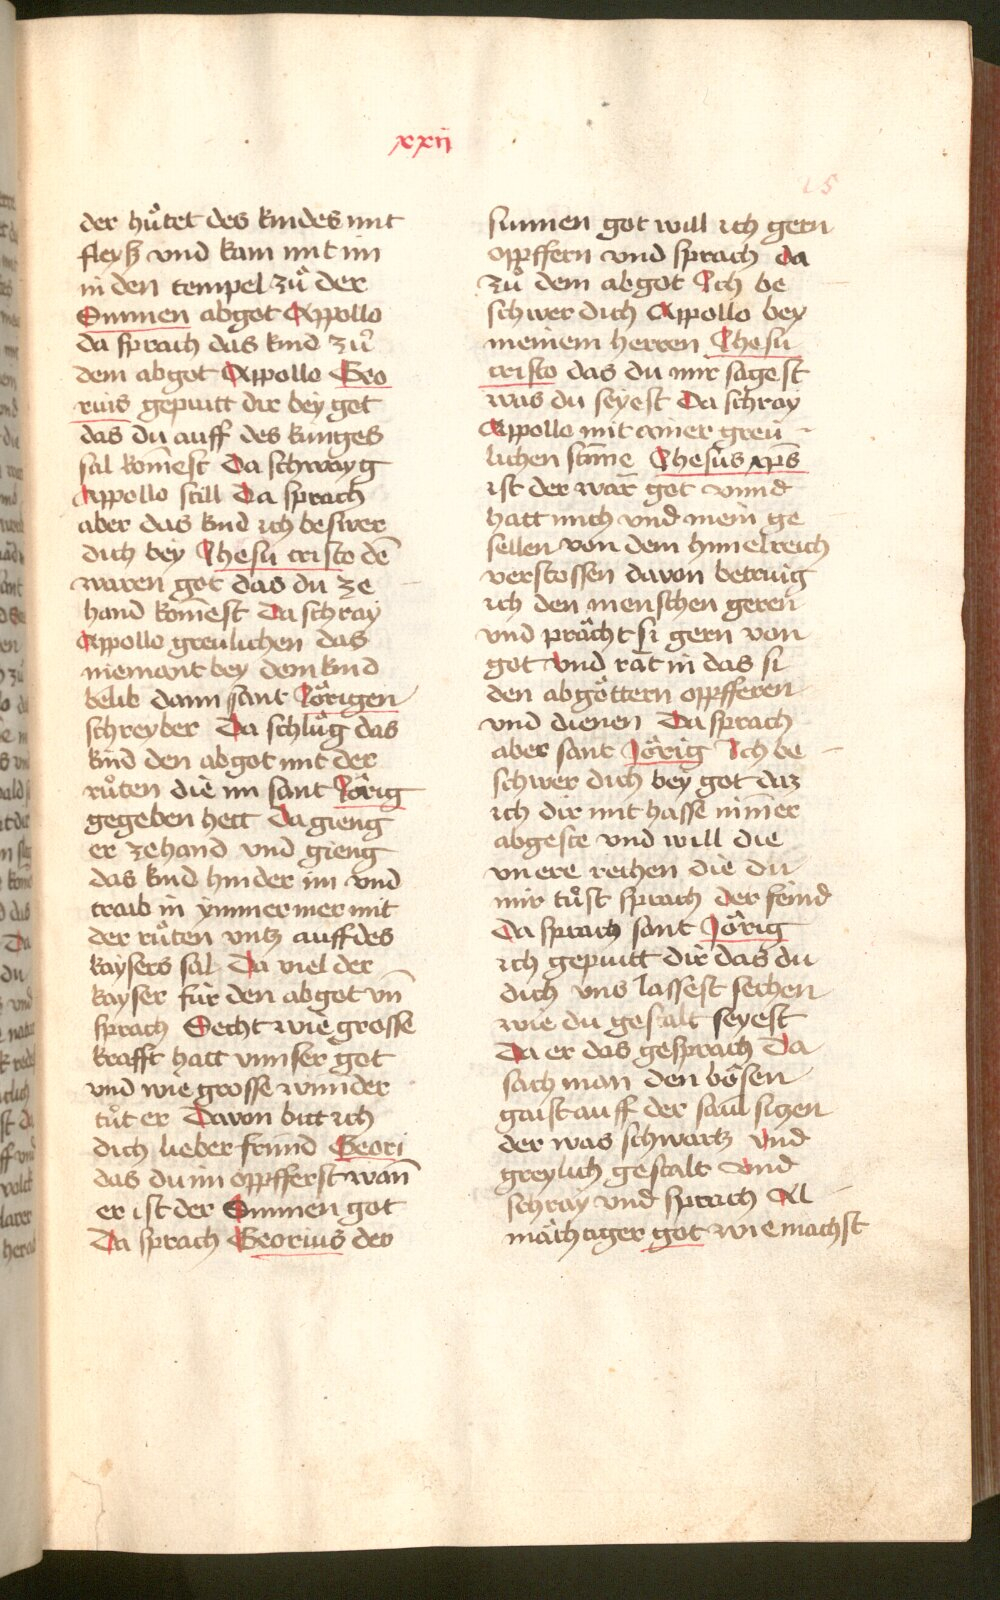 xxii
25
der hůtet des kindes mit
fleyß vnd kam mit im
in den tempel zů der
Sunnen abgot Appollo
da sprach das kind zů
dem abgot Appollo Geo
rius gepuitt dir bey got
das du auff des kunges
sal kom̄est Da schwayg
Appollo still Da sprach
aber das kind ich beswer
dich bey Jhesu cristo dē
waren got das du ze
hand kom̄est Da schray
Appollo greulichen das
niemant bey dem kind
belib dann sant Jörigen
schreyber Da schlůg das
kind den abgot mit der
růten die im sant Jörig
gegeben hett Da gieng
er zehand vnd gieng
das kind hinder im vnd
traib in ymmermer mit
der růten vntz auff des
kaysers sal Da viel der
kayser für den abgot vn̄
sprach Secht wie grosse
krafft hatt vnnser got
vnd wie grosse wunder
tůt er Davon bitt ich
dich lieber frund Geori
das du im oppfferst wan̄
er ist der Sunnen got
Da sprach Georius der
sunnen got will ich gern
oppffern vnd sprach da
zů dem abgot Ich be
schwer dich Appollo bey
meinem herren Jhesu
cristo das du mir sagest
was du seyest Da schray
Appollo mit ainer greu
lichen stim̄e Jhesus xp̄s
ist der war got vnnd
hatt mich vnd mein ge
sellen von dem himelreich
verstossen davon betruig
ich den menschen geren
vnd prächt si gern von
got vnd rat in das si
den abgöttern oppfferen
vnd dienen Da sprach
aber sant Jörig Ich be
schwer dich bey got daz
ich dir mit hasse nim̄er
abgeste vnd will die
vnere rechen die du
mir tůst sprach der feind
Da sprach sant Jörig
ich gepuitt dir das du
dich vns lassest sechen
wie du gestalt seyest
Da er das gesprach Da
sach man den bösen
gaist auff der saul sitzen
der was schwartz vnd
greylich gestalt vnd
schray vnd sprach Al
mächtiger got wie machst